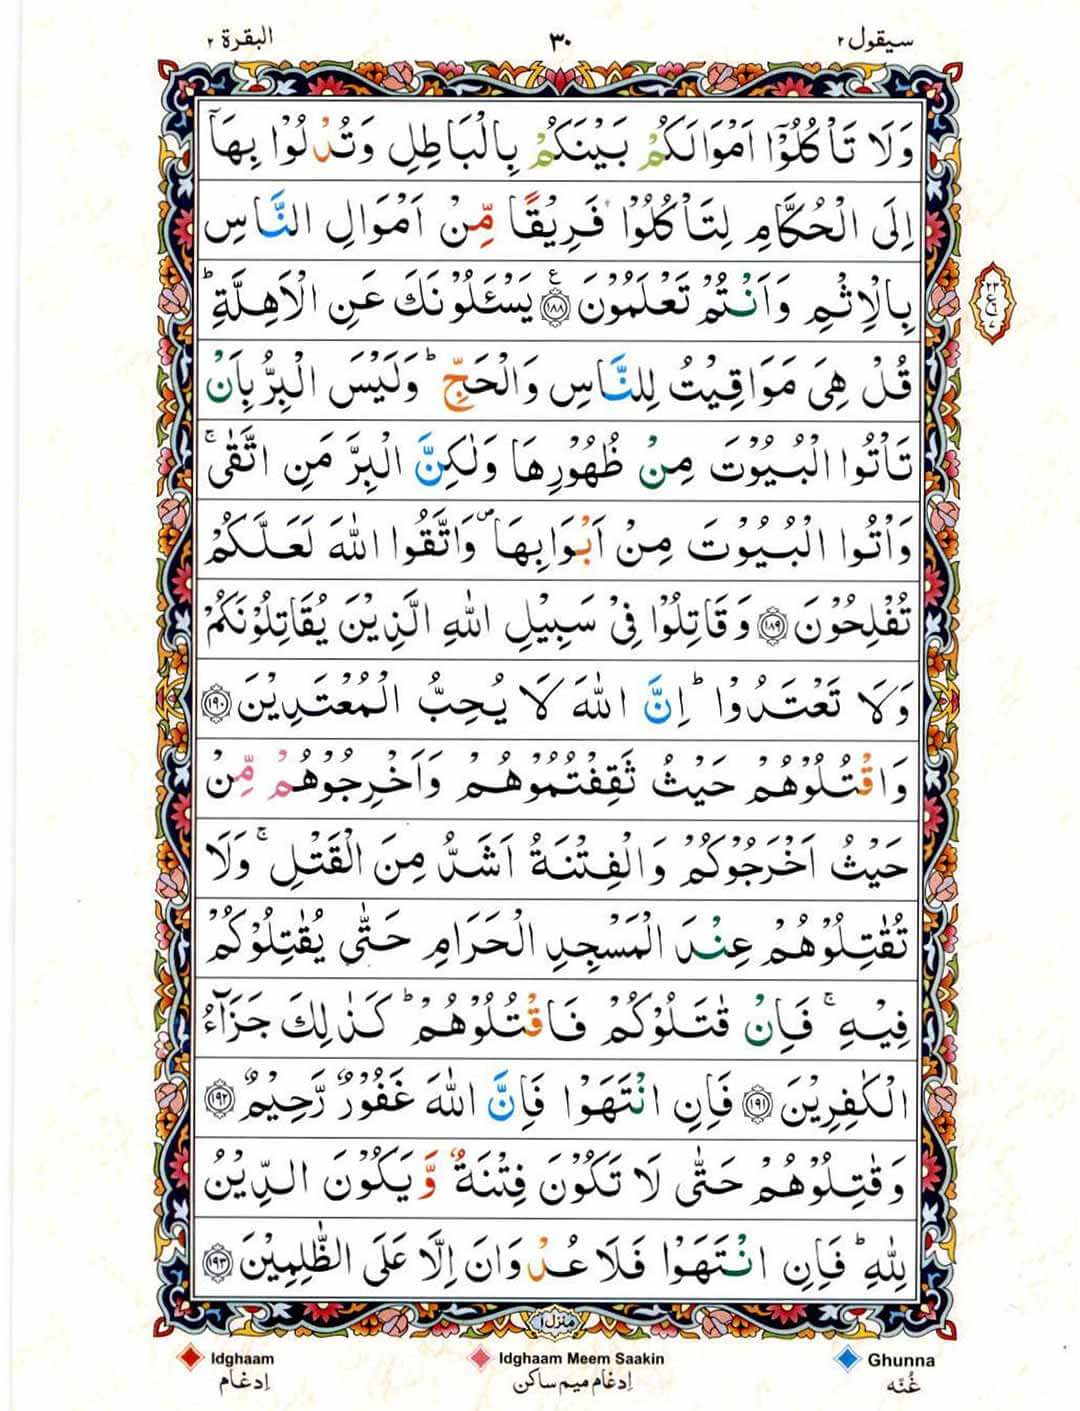 سيقول ٢
٣٠
البقرة ٢
وَلَا تَاْكُلُوْٓا اَمْوَالَكُمْ بَيْنَكُمْ بِالْبَاطِلِ وَتُدْلُوْا بِهَآ
اِلَى الْحُكَّامِ لِتَاْكُلُوْا فَرِيْقًا مِّنْ اَمْوَالِ النَّاسِ
بِالْاِثْمِ وَاَنْتُمْ تَعْلَمُوْنَ ﴿١٨٨﴾ۧ يَسْـَٔلُوْنَكَ عَنِ الْاَهِلَّةِ ؕ
قُلْ هِيَ مَوَاقِيْتُ لِلنَّاسِ وَالْحَجِّ ؕ وَلَيْسَ الْبِرُّ بِاَنْ
تَاْتُوا الْبُيُوْتَ مِنْ ظُهُوْرِهَا وَلٰكِنَّ الْبِرَّ مَنِ اتَّقٰى ۚ
وَاْتُوا الْبُيُوْتَ مِنْ اَبْوَابِهَا ۪ وَاتَّقُوا اللّٰهَ لَعَلَّكُمْ
تُفْلِحُوْنَ ﴿١٨٩﴾ وَقَاتِلُوْا فِيْ سَبِيْلِ اللّٰهِ الَّذِيْنَ يُقَاتِلُوْنَكُمْ
وَلَا تَعْتَدُوْا ؕ اِنَّ اللّٰهَ لَا يُحِبُّ الْمُعْتَدِيْنَ ﴿١٩٠﴾
وَاقْتُلُوْهُمْ حَيْثُ ثَقِفْتُمُوْهُمْ وَاَخْرِجُوْهُمْ مِّنْ
حَيْثُ اَخْرَجُوْكُمْ وَالْفِتْنَةُ اَشَدُّ مِنَ الْقَتْلِ ۚ وَلَا
تُقٰتِلُوْهُمْ عِنْدَ الْمَسْجِدِ الْحَرَامِ حَتّٰى يُقٰتِلُوْكُمْ
فِيْهِ ۚ فَاِنْ قٰتَلُوْكُمْ فَاقْتُلُوْهُمْ ؕ كَذٰلِكَ جَزَآءُ
الْكٰفِرِيْنَ ﴿١٩١﴾ فَاِنِ انْتَهَوْا فَاِنَّ اللّٰهَ غَفُوْرٌ رَّحِيْمٌ ﴿١٩٢﴾
وَقٰتِلُوْهُمْ حَتّٰى لَا تَكُوْنَ فِتْنَةٌ وَّيَكُوْنَ الدِّيْنُ
لِلّٰهِ ؕ فَاِنِ انْتَهَوْا فَلَا عُدْوَانَ اِلَّا عَلَى الظّٰلِمِيْنَ ﴿١٩٣﴾
منزل ١
Idghaam Idghaam Meem Saakin Ghunna
إدغام إدغام ميم ساكن غُنّه